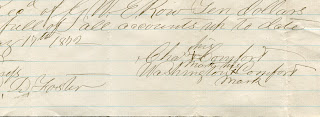 of G. W. E. Row Ten dollars
full of all accounts up to date
17th 1877
his
Chas + Comfort
mark his
Washington + Comfort
mark
D. Foster